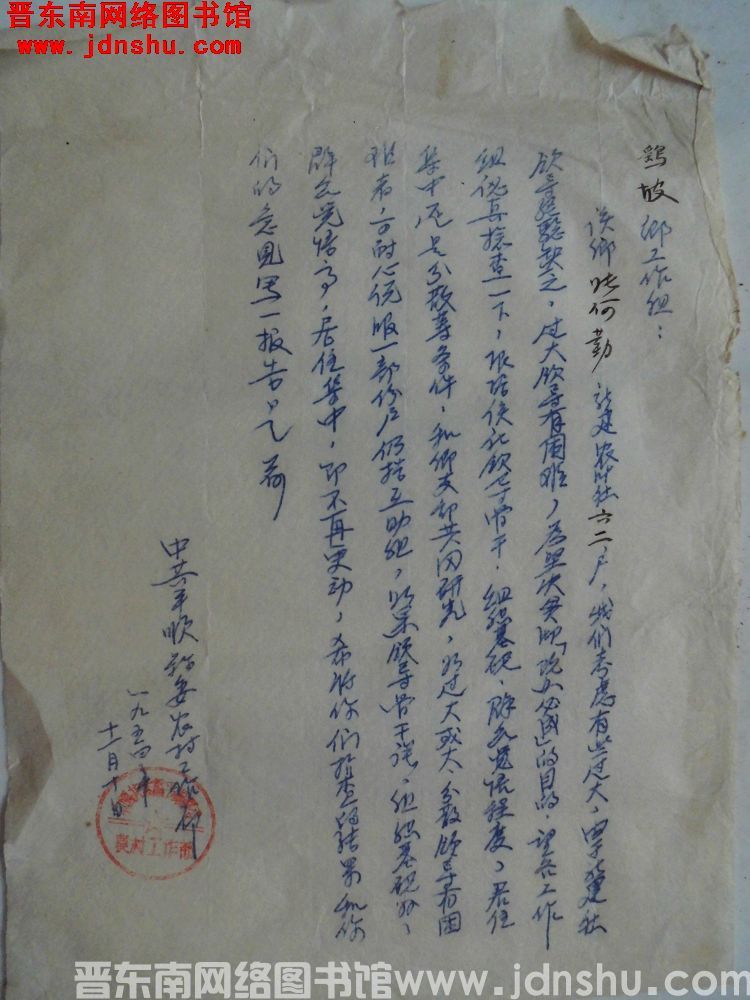 晋东南网络图书馆
www.jdnshu.com
鸡坡乡工作组：
该乡 张何勤 新建农业社六二户，我们考虑有些过大，由于新建社
领导经验缺乏，过大领导有困难，为坚决贯彻"说办必固"的目的，望各工作
组认真检查一下，根据该社领导骨干，组织基础，群众觉悟程度，居住
集中还是分散等条件，和乡支部共同研究，如过大或大、分散领导有困
难者，可耐心说服一部份户仍搞互助组，如果领导骨干强，组织基础好，
群众觉悟高，居住集中，即不再更动，希将你们检查的结果和你
们的意见写一报告是荷
中共平顺县委农村工作部
一九五四年
十一月十日
农村工作部
晋东南网络图书馆www.jdnshu.com